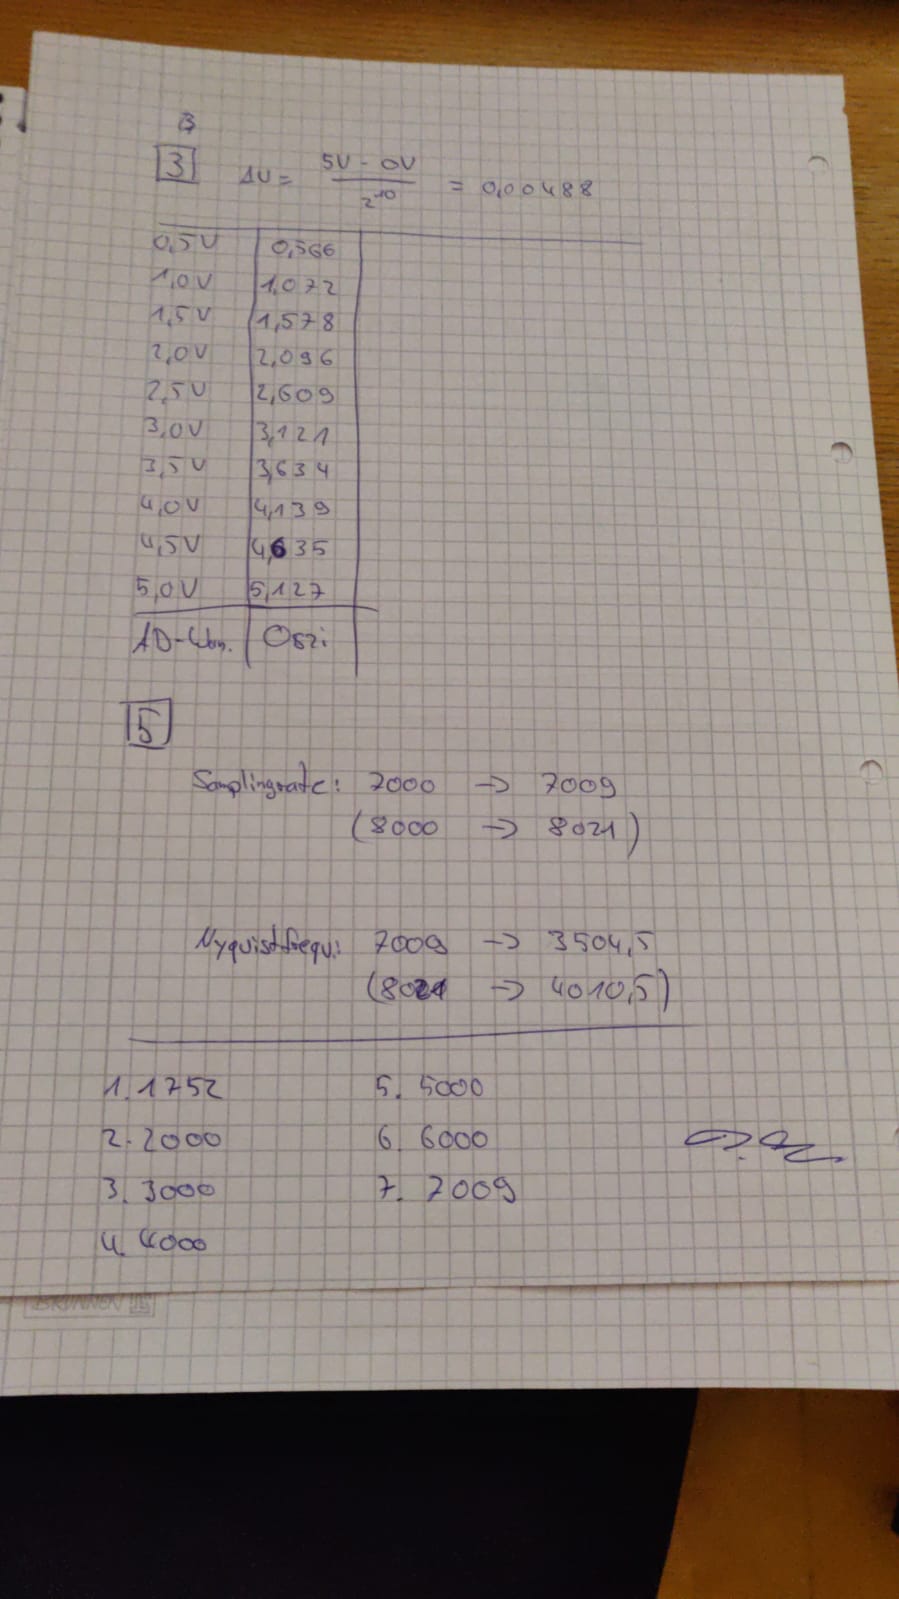 B
3 ΔU = 5V - 0V / 2^10 = 0,00488
0,5V 0,566
1,0V 1,072
1,5V 1,578
2,0V 2,096
2,5V 2,609
3,0V 3,121
3,5V 3,634
4,0V 4,139
4,5V 4,635
5,0V 5,127
AD-Wan. Oszi
5
Samplingrate: 7000 → 7009
(8000 → 8021)
Nyquistfrequ: 7009 → 3504,5
(8021 → 4010,5)
1. 1752 5. 5000
2. 2000 6. 6000
3. 3000 7. 7009
4. 4000
BRUNNEN